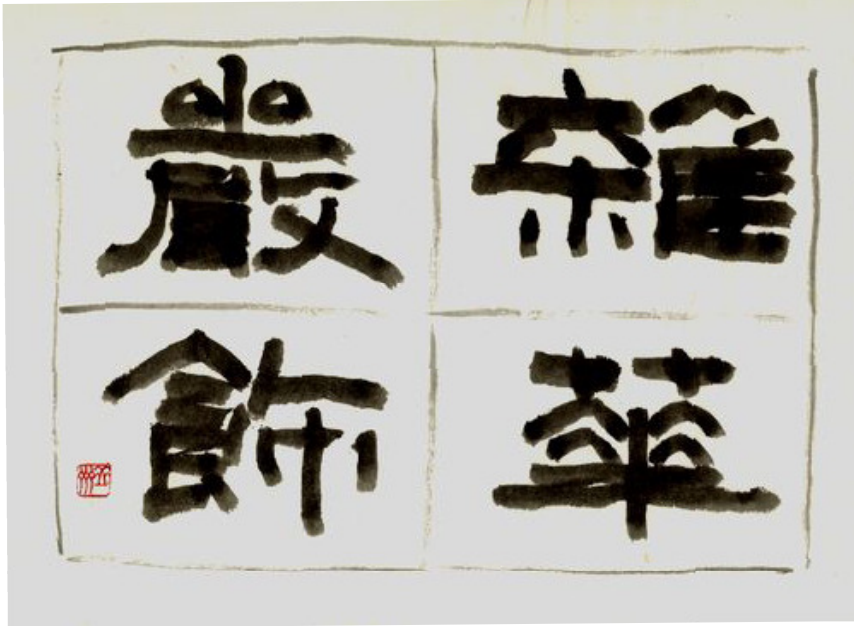 雜華
嚴飾